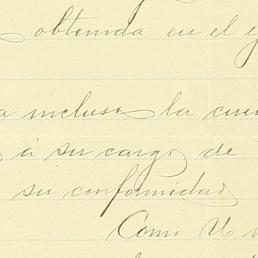 obtenida en el
a inclusa la
á su cargo, de
su conformidad
Como V.